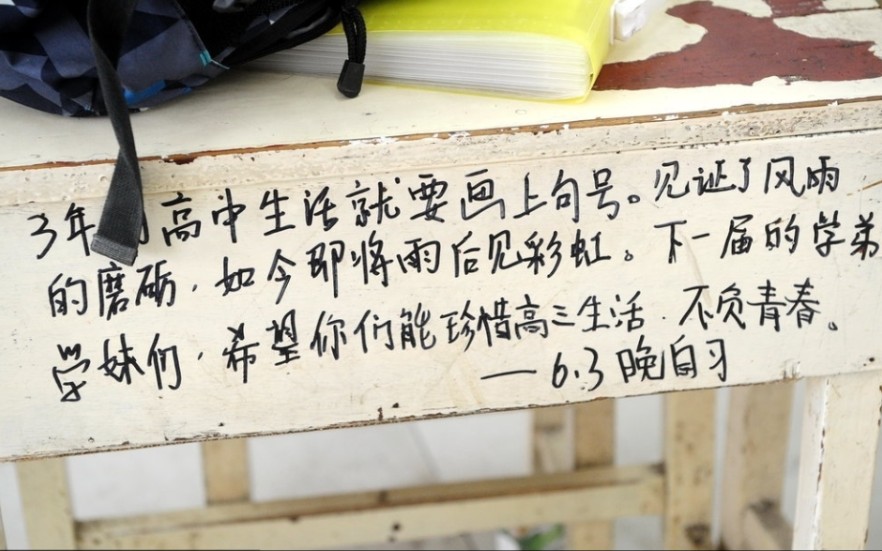 3年 高中生活就要画上句号。见证了风雨
的磨砺,如今即将雨后见彩虹。下一届的学弟
学妹们,希望你们能珍惜高三生活.不负青春。
— 6.3晚自习